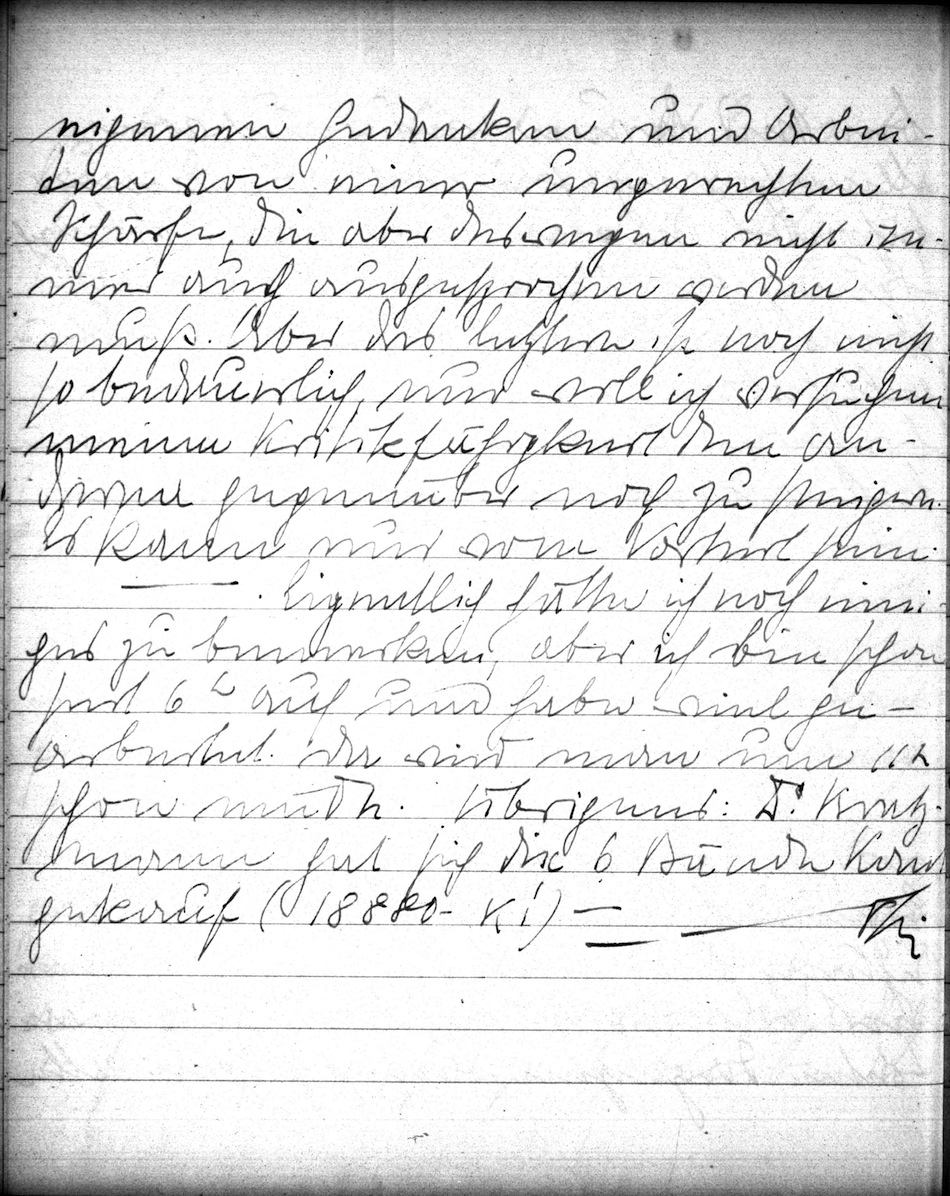 eigenen Gedanken und Arbei-
ten von einer ungerechten
Schärfe, die aber deswegen nicht im-
mer auch ausgesprochen werden
muß. Aber das letztere ist noch nicht
so bedauerlich, nur will ich versuchen
meine Kritikfähigkeit den an-
deren gegenüber noch zu steigern.
Es kann nur vom Vorteil sein.
Eigentlich hätte ich noch eini-
ges zu bemerken, aber ich bin schon
seit 6 h auf und habe viel ge-
arbeitet. Da wird man um 11h
schon müde. Übrigens: D.
mann hat sich die 6 Bände Kant
gekauft (18880- Kč)